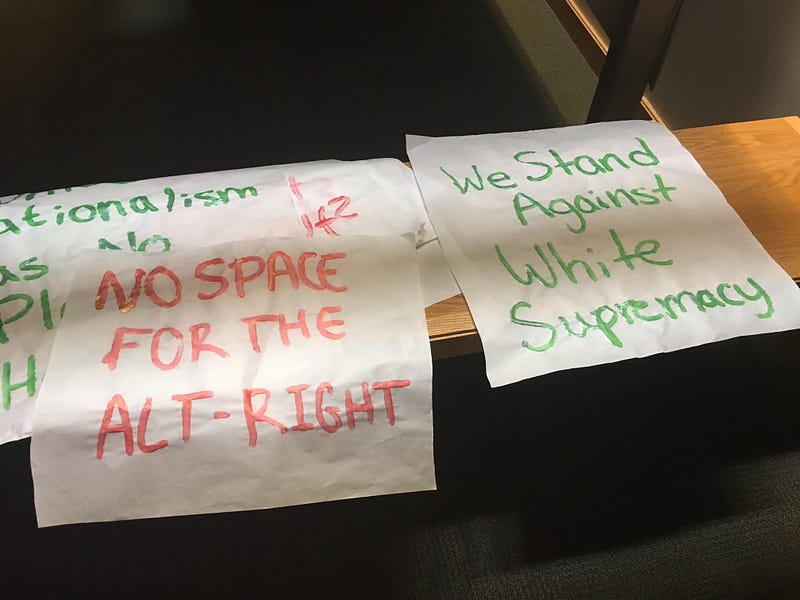 ationalism
as No
Pl
H
NO SPACE
FOR THE
ALT-RIGHT
We Stand
Against
White
Supremacy